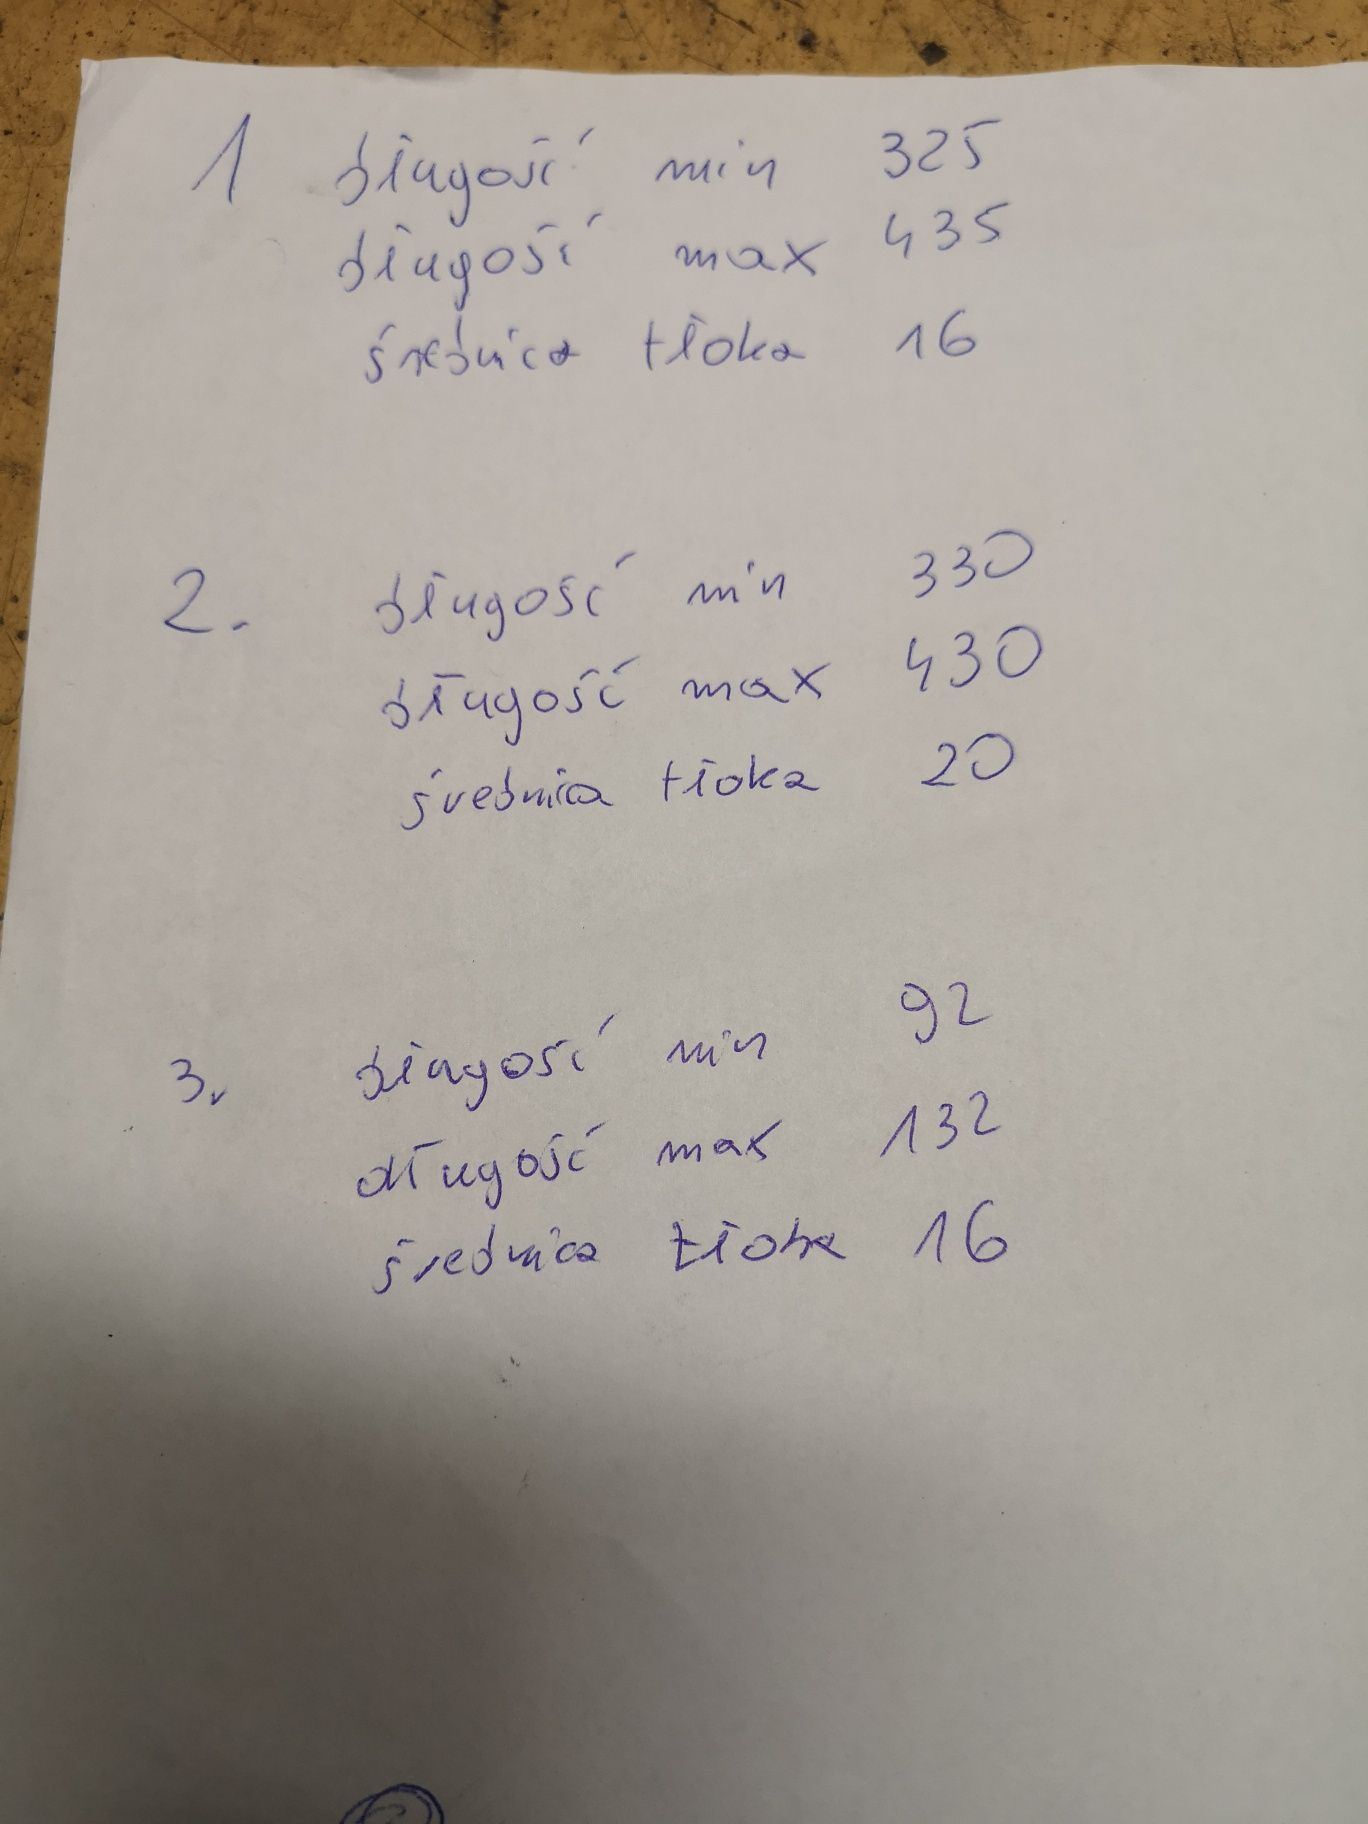 1 długość min 325
długość max 435
średnica tłoka 16
2. długość min 330
długość max 430
średnica tłoka 20
3. długość min 92
długość max 132
średnica tłoka 16